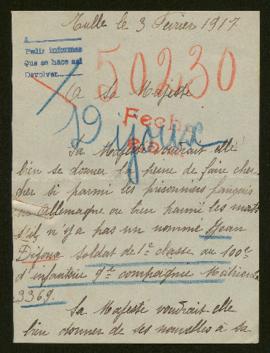 Tulle le 3 Février 1917
A
Pedir informes
Que se hace así
Devolver
50230
A Sa Majesté
Fecha
19 Dijoux
Sa Majesté voudrait elle
bien se donner la peine de faire cher
cher si parmi les prisonniers français
en Allemagne ou bien parmi les morts
s'il n'y a pas un nommé Jean
Dijoux soldat de 1e classe au 100e
d'infanterie 9e compagnie Matricule
9369.
Sa Majesté voudrait elle
bien donner de ses nouvelles à sa